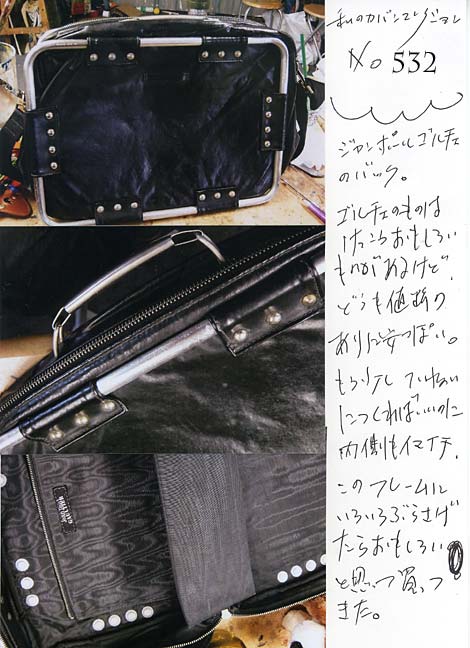 私のカバンコレクション
No 532
ジャンポールゴルチェ
のバック。
ゴルチェのものは
けっこうおもしろい
ものがあるけど、
どうも値段の
わりに安っぽい。
もう少していねい
につくればいいのに
内側もイマイチ。
このフレームに
いろいろぶらさげ
たらおもしろい
と思って買って
きた。